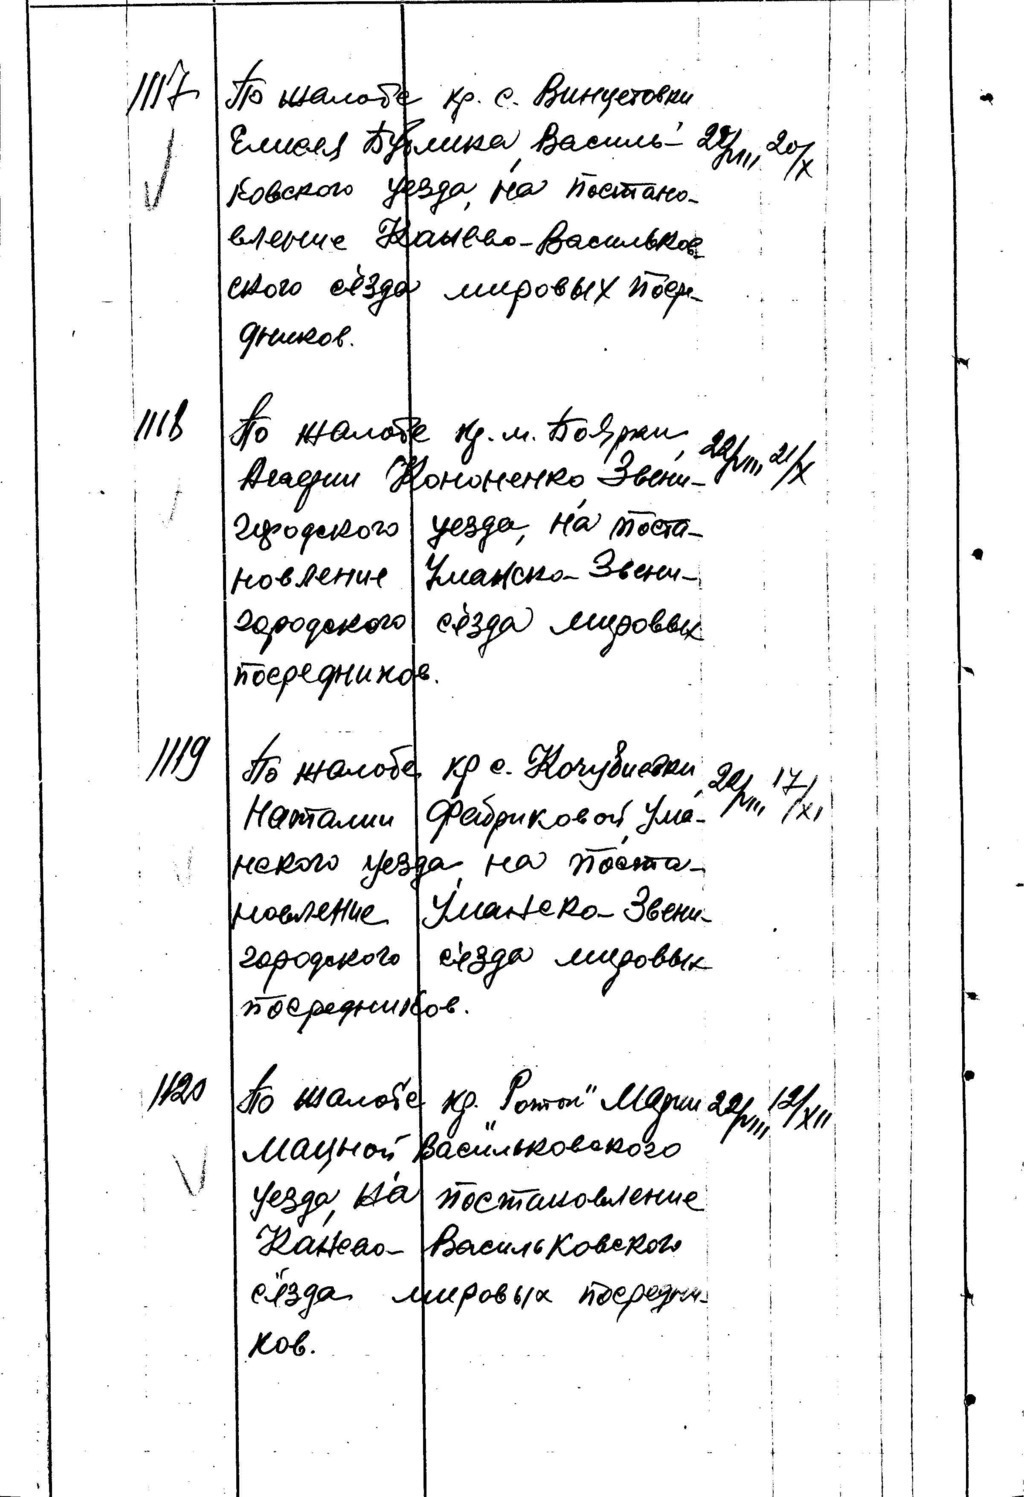 1117 По жалобе кр. с. Винцетовки
Елисея Бублика, Василь- 22/VIII 20/X
ковского уезда, на постано-
вление Канево-Васильков-
ского съезда мировых посре-
дников.
1118 По жалобе кр. м. Боярки,
Агафии Кононенко, Звени- 22/VIII 21/X
городского уезда, на поста-
новление Уманско-Звени-
городского съезда мировых
посредников.
1119 По жалобе кр с. Кочубиевки,
Наталии Фабриковой, Ума- 22/VIII 17/XI
нского уезда, на поста-
новление Уманско-Звени-
городского съезда мировых
посредников.
1120 По жалобе кр. Марии 22/VIII 12/XII
Мацной Васильковского
уезда, на постановление
Канево-Васильковского
съезда мировых посредни-
ков.